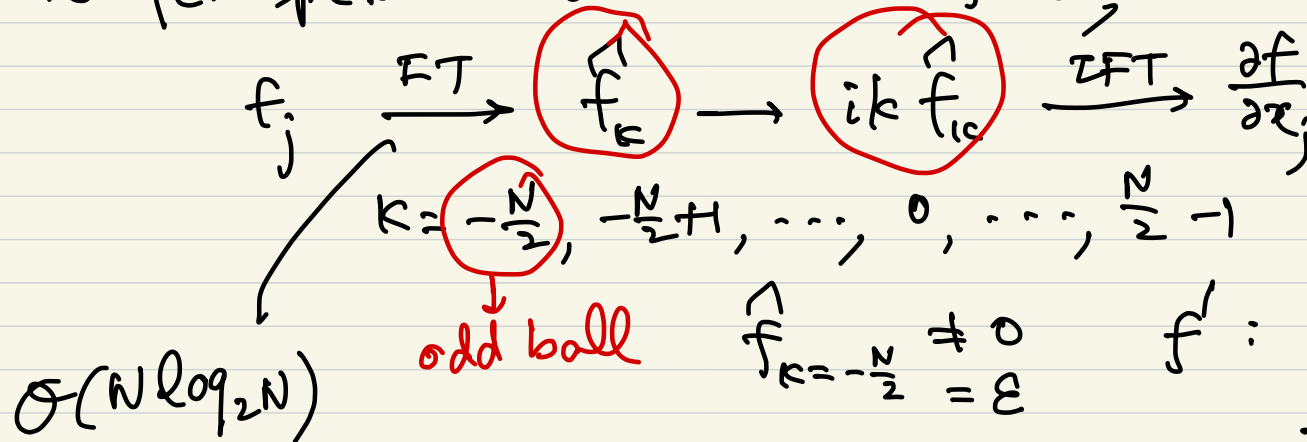 f_j FT → f̂_k → ik f̂_k IFT → ∂f/∂x_j
K = -N/2, -N/2+1, ..., 0, ..., N/2 -1
odd ball f̂_{k=-N/2} ≠ 0 f' :
= ε
O(N log₂N)